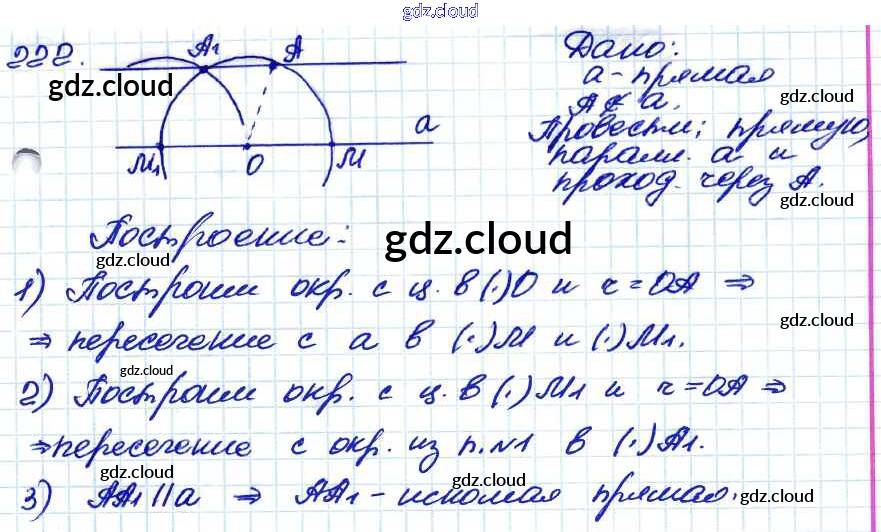 gdz.cloud
222.
A₁
A
gdz.cloud
a
M₁
O
M
Дано:
a - прямая
gdz.cloud
A ∉ a.
Провести: прямую,
паралл. a и
проход. через A.
gdz.cloud
Построение:
gdz.cloud
gdz.cloud
gdz.cloud
1) Построим окр. с ц. в (·)O и r = OA ⇒
⇒ пересечение с a в (·)M и (·)M₁.
gdz.cloud
gdz.cloud
2) Построим окр. с ц. в (·)M₁ и r = OA ⇒
⇒ пересечение с окр. из п.№1 в (·)A₁.
gdz.cloud
gdz.cloud
3) AA₁ || a ⇒ AA₁ - искомая прямая.
gdz.cloud
gdz.cloud